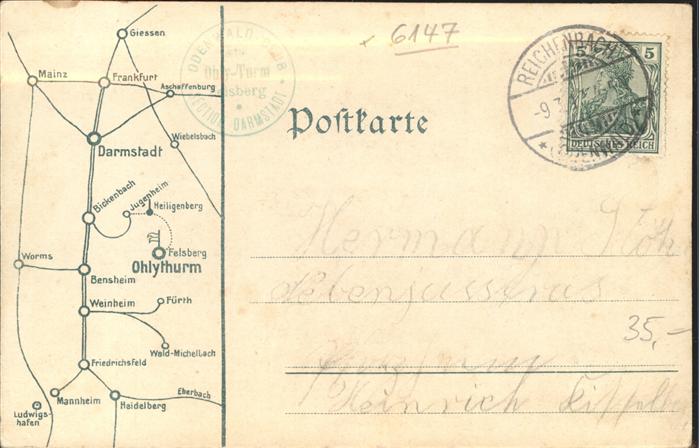 Giessen
Mainz
Frankfurt
Aschaffenburg
Darmstadt
Wiebelsbach
Bickenbach
Jugenheim
Heiligenberg
Felsberg
Ohlythurm
Worms
Bensheim
Weinheim
Fürth
Wald-Michelbach
Friedrichsfeld
Mannheim
Heidelberg
Eberbach
Ludwigs-
hafen
ODENWALD CLUB
Ohly-Turm
Felsberg
SECTION DARMSTADT
6147
Postkarte
REICHENBACH
-9
(ODENW
5 5
DEUTSCHES REICH
Hermann
35,-
Heinrich